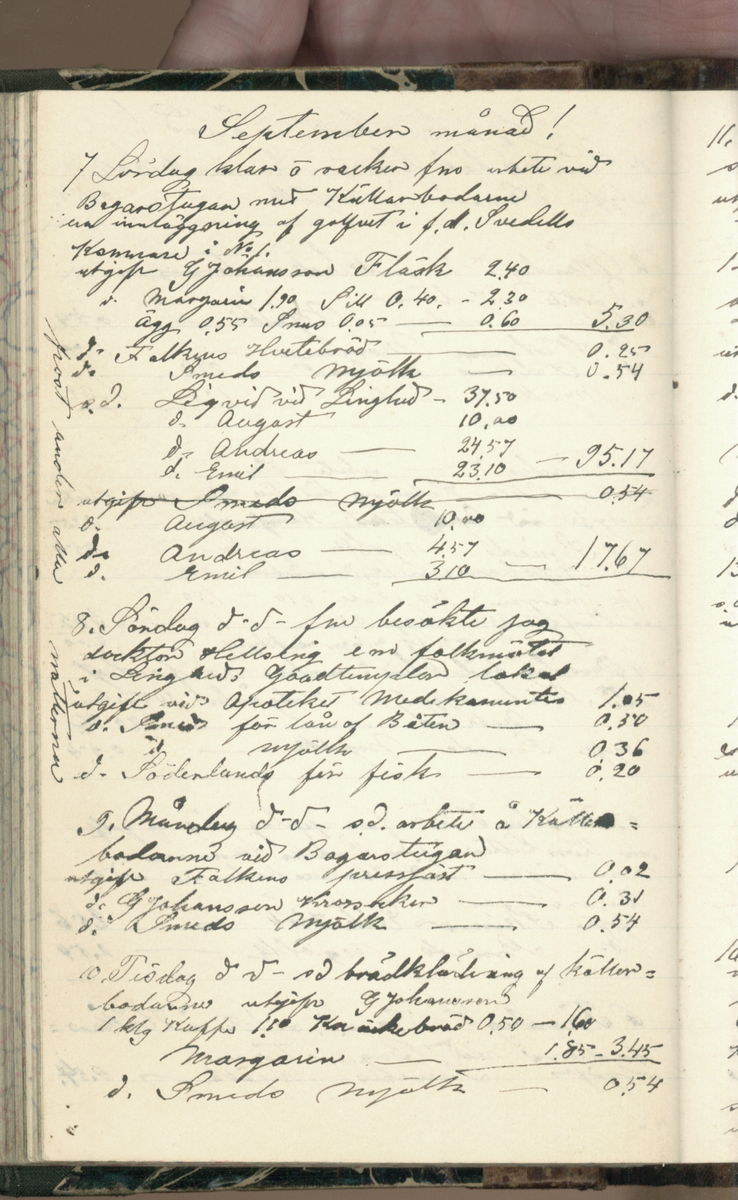 September månad!
7 Lördag klar o vacker fno arbete vid
Bagarstugan med Källarbodarne
en innläggning af golfvet i f.d. Svedells
Kammare i No 1.
utgift G Johansson Fläsk 2.40
d. Margarin 1.90 Sill 0.40. - 2.30
Ägg 0.55 Snus 0.05 — 0.60 5.30
d. Falkens Hvetebröd — 0.25
d. Smeds mjölk — 0.54
s.d. Liqvid vid Linghed - 37.50
d. August 10.00
d. Andreas — 24.57
d. Emil — 23.10 — 95.17
utgift Smeds mjölk — 0.54
d. August 10.00
d. Andreas — 4.57
d. Emil — 3.10 — 17.67
8. Söndag d-d- fm besökte jag
doktor Hellsing em folkmötet
i Lingheds Goodtemplar lokal
utgift vid Apoteket Medikamenter 1.05
d. Smeds för lån af Båten — 0.50
d mjölk — 0.36
d. Söderlunds för fisk — 0.20
9. Måndag d-d- sd. arbete å Källar=
bodarne vid Bagarstugan
utgift Falkens pressjäst — 0.02
d. G Johansson Krossocker — 0.31
d. Smeds Mjölk — 0.54
10. Tisdag d d- sd brädklädning af Källar=
bodarne utgift G Johansson
1 klg Kaffe 1.10 Knäckebröd 0.50 — 1.60
Margarin — 1.85 - 3.45
d. Smeds mjölk — 0.54
frost under alla nätterna